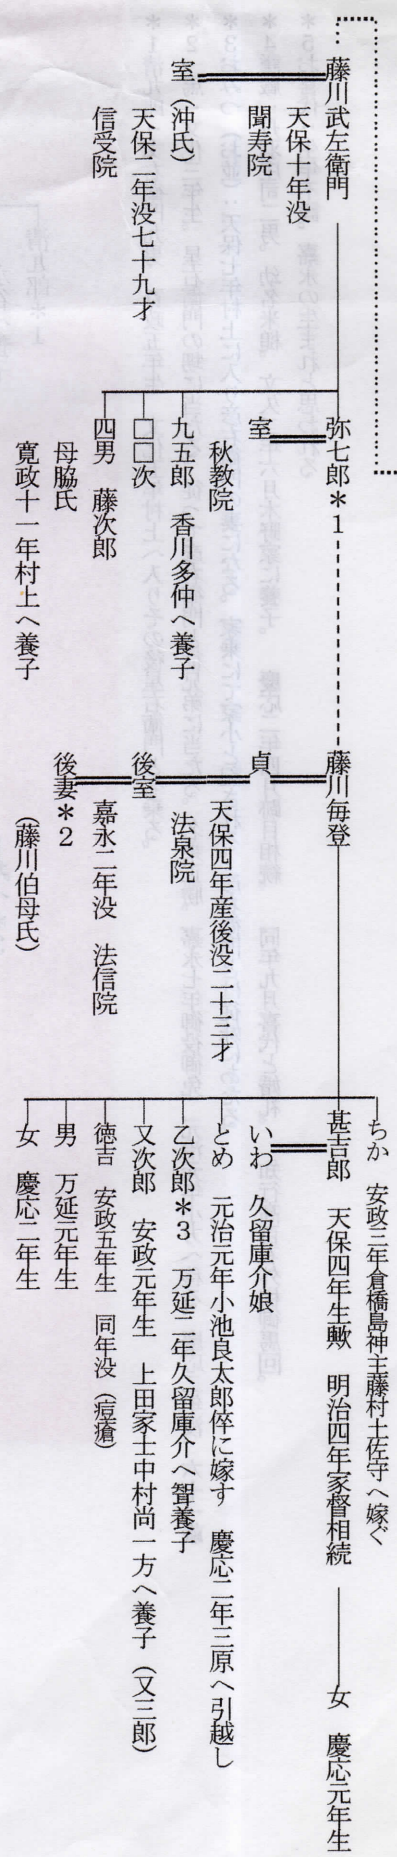 藤川武左衛門
天保十年没
聞寿院
室（沖氏）
天保二年没七十九才
信受院
弥七郎＊１
室
秋教院
九五郎　香川多仲へ養子
□□次
四男　藤次郎
母脇氏
寛政十一年村上へ養子
藤川毎登
貞
天保四年産後没二十三才
法泉院
後室
嘉永二年没　法信院
後妻＊２
（藤川伯母氏）
ちか　安政三年倉橋島神主藤村土佐守へ嫁ぐ
甚吉郎　天保四年生歟　明治四年家督相続
いわ　久留庫介娘
とめ　元治元年小池良太郎倅に嫁す　慶応二年三原へ引越し
乙次郎＊３　万延二年久留庫介へ聟養子
又次郎　安政元年生　上田家士中村尚一方へ養子（又三郎）
徳吉　安政五年生　同年没（痘瘡）
男　万延元年生
女　慶応二年生
女　慶応元年生